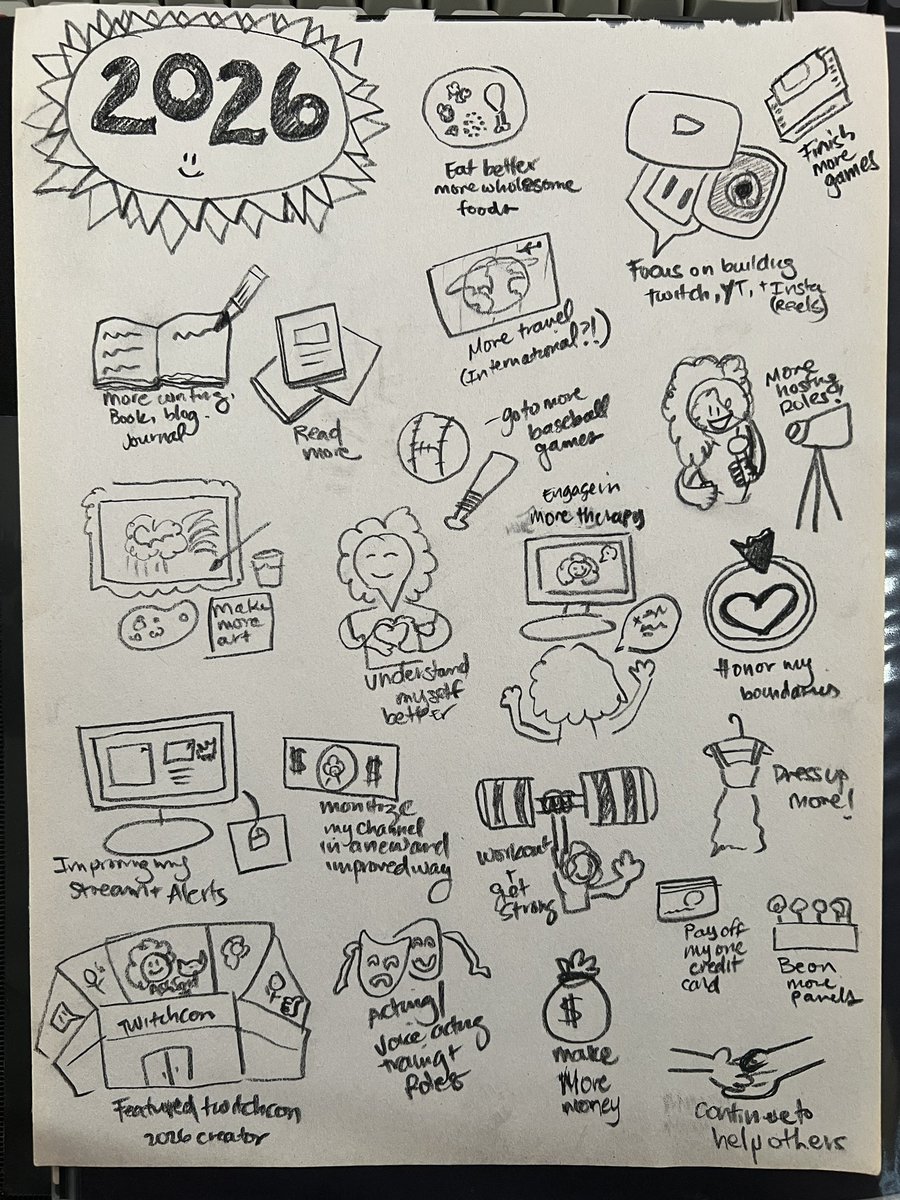 2026
Eat better
more wholesome
foods
Finish
more
games
Focus on building
twitch, YT, + Insta
(Reels)
More travel
(International?!)
more writing.
Book, blog.
Journal
Read
more
- go to more
baseball
games
More
hosting
Roles!
Engage in
more therapy
make
more
art
understand
myself
better
Honor my
boundaries
Improving my
Stream + Alerts
$ $
monitize
my channel
in a new and
improved way
Workout
+
get
Strong
Dress up
more!
Pay off
my one
credit
card
Be on
more
panels
Twitchcon
Featured twitchcon
2026 creator
Acting/
Voice acting
training +
Roles
$
make
More
money
Continue to
help others